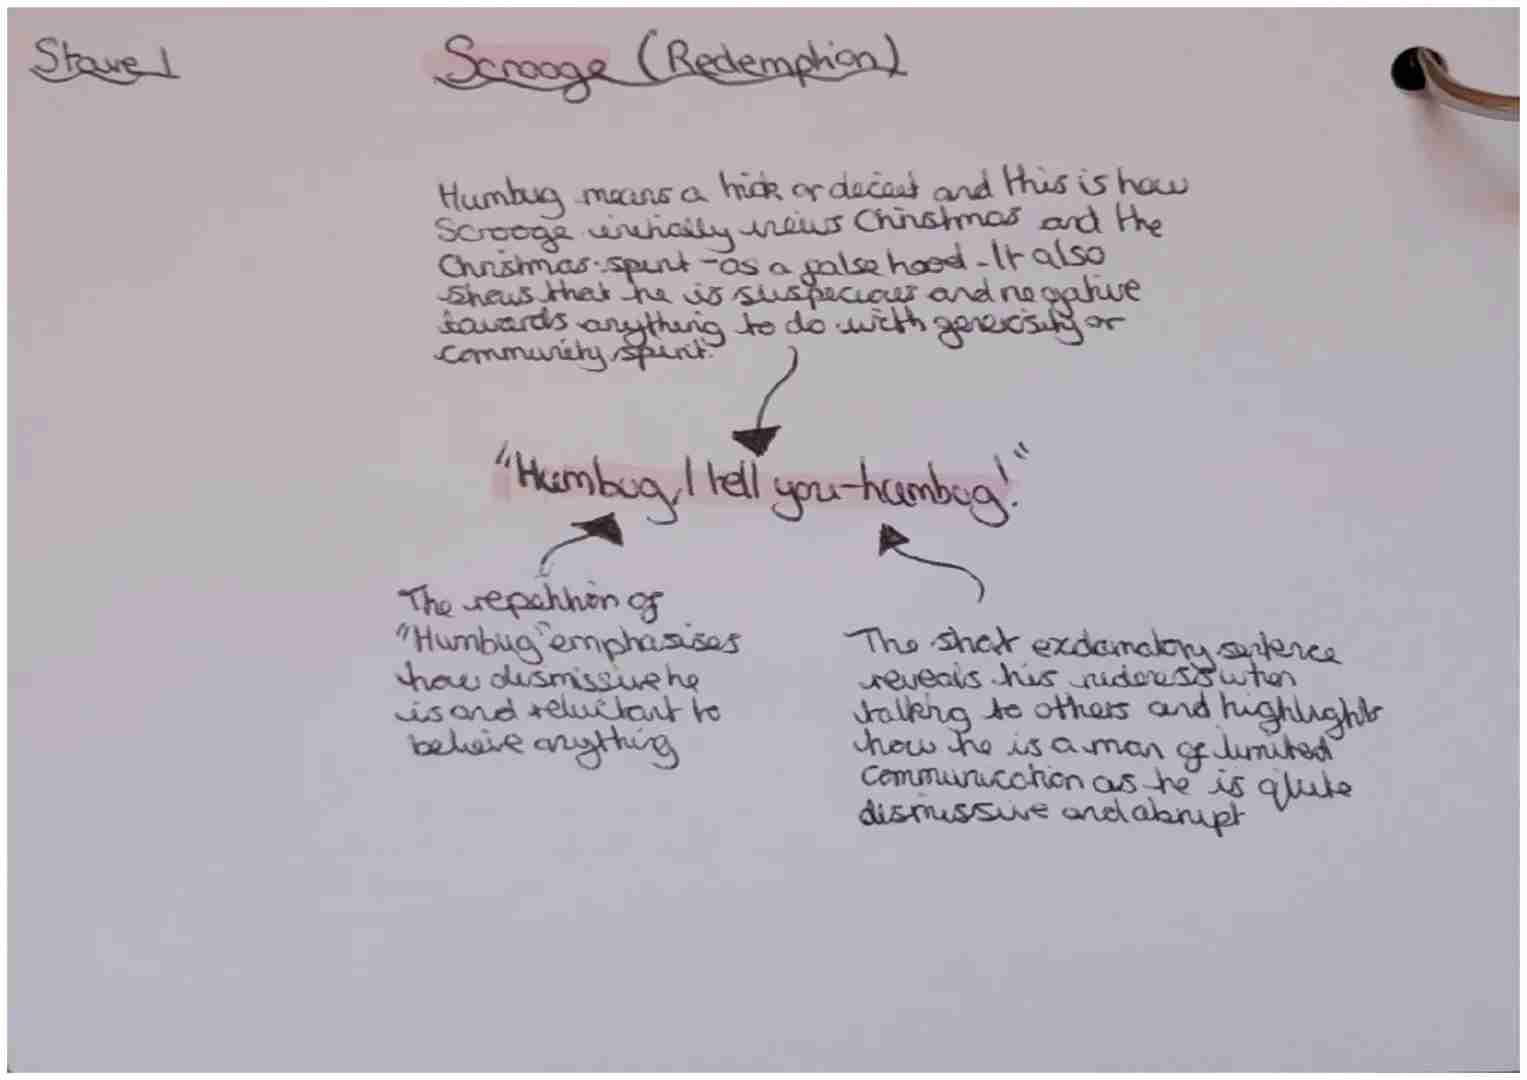 Stave 1
Scrooge (Redemption)
Humbug means a trick or deceit and this is how
Scrooge initially views Christmas and the
Christmas spirit - as a false hood. It also
shows that he is suspecious and negative
towards anything to do with generosity or
community spirit.
"Humbug, I tell you - humbug!"
The repatition of
"Humbug" emphasises
how dismissive he
is and reluctant to
believe anything
The short exclamatory sentence
reveals his rudeness when
talking to others and highlights
how he is a man of limited
communication as he is quite
dismissive and abrupt